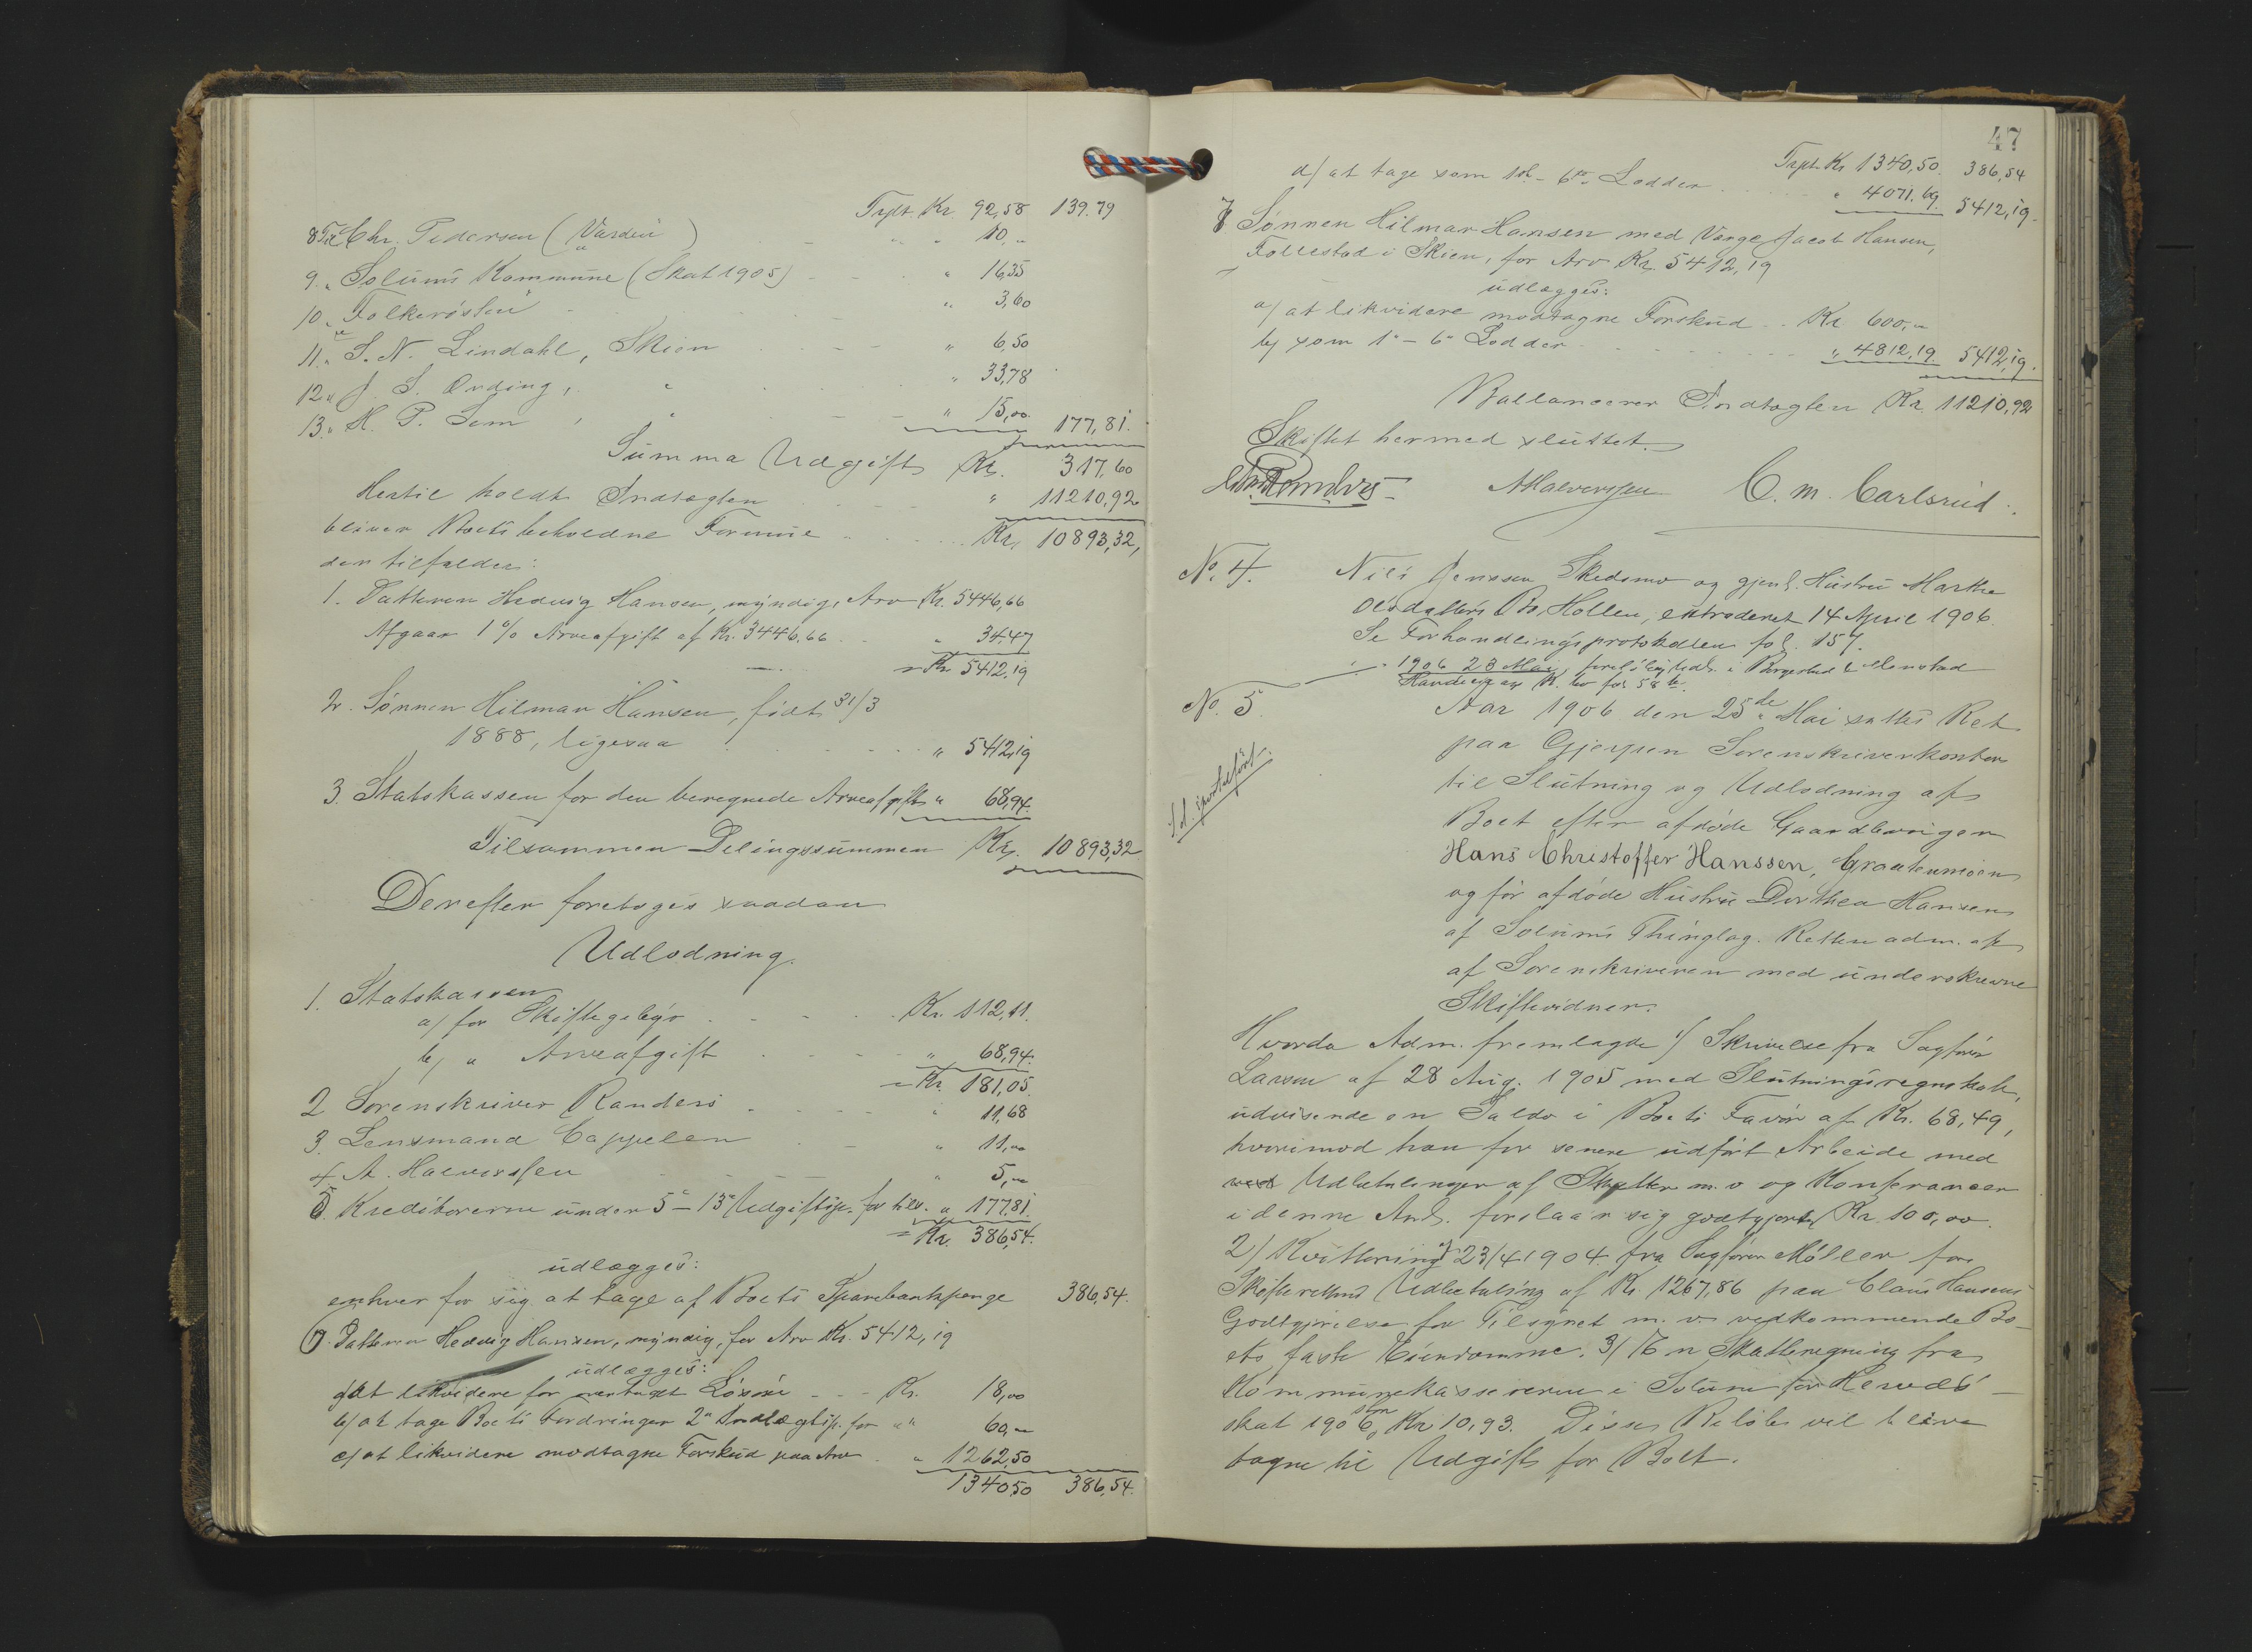 Trspt. Kr. 92,58 139.79
8 Til Chr. Pedersen ("Varden") " " 10,"
9. " Solums Kommune (Skat 1905) " 16,35
10 " "Folkerösten" " 3,60
11. " S. N. Lindahl, Skien " 6,50
12 " J. S. Ording, " " 33,78
13. " H. P. Sem , " " 15,00 177,81.
Summa Udgift Kr. 317,60
Hertil holdt Indtægten " 11210,92
bliver Boets beholdne Formue Kr. 10893,32,
der tilfalder:
1. Datteren Hedvig Hansen, myndig, Arv Kr. 5446,66
Afgaar 1 % Arveafgift af Kr. 3446.66 " 34.47
= Kr. 5412,19
2. Sønnen Hilmar Hansen, født 31/3
1888, ligesaa " 5412,19
3. Statskassen for den beregnede Arveafgift " 68,94.
Tilsammen Delingssummen Kr. 10893,32
Derefter foretoges saadan
Udlodning.
1. Statskassen
a) for Skiftegebyr Kr. 112,11.
b) " Arveafgift " 68,94.
= Kr. 181,05.
2 Sorenskriver Randers " 11,68
3. Lensmand Cappelen " 11,00
4. A. Halvorssen " 5,00
5. Kreditorerne under 5te - 13de Udgiftsp. for tils. " 177,81.
= Kr. 386,54.
udlægges:
enhver for sig at tage af Boets Sparebankpenge 386,54.
6. Datteren Hedvig Hansen, myndig, for Arv Kr. 5412,19
udlægges:
a) at likvidere for overtaget Løsøre Kr. 18,00
b) at tage Boets Fordringer 2den Indtægtsp. for " " 60,00
c) at likvidere modtagne Forskud paa Arv " 1262,50
1340,50 386,54.
47
Trspt. Kr 1340,50. 386,54
d) at tage som 1ste - 6te Lodder " 4071,69. 5412,19.
7 Sønnen Hilmar Hansen med Værge Jacob Hansen,
Follestad i Skien, for Arv Kr. 5412,19
udlægges:
a) at likvidere modtagne Forskud Kr 600,00
b) som 1ste - 6te Lodder " 4812,19. 5412,19.
Ballancerer Indtægten Kr. 11210,92
Skiftet hermed sluttet.
Randers AHalvorssen C. M. Carlsrud.
No. 4. Nils Jenssen Skedsmo og gjenl. Hustru Marthe
Olsdatters Bo, Hollen, extraderet 14 April 1906.
Se Forhandlingsprotokollen fol. 157.
1906 23 Mai,
No. 5. Aar 1906 den 25de Mai sattes Ret
paa Gjerpen Sorenskriverkontor
til Slutning og Udlodning af
Boet efter afdøde Gaardbruger
Hans Christoffer Hanssen, Graatenmoen
og før afdøde Hustru Dorthea Hansen
af Solums Thinglag. Retten adm. af
af Sorenskriveren med underskrevne
Skiftevidner.
Hvorda Adm. fremlagde 1) Skrivelse fra Sagfører
Larsen af 28 Aug. 1905 med Slutningsregnskab,
udvisende en Saldo i Boets Favør af Kr. 68,49,
hvorimod han for senere udført Arbeide med
Udbetalinger af Skatter m.v og Konferancer
i denne Anl. forslaar sig godtgjort Kr. 100,00.
2) Kvittering af 23/4 1904 fra Sagfører Møller for
Skifterettens Udbetaling af Kr. 1267,86 paa Claus Hansens
Godtgjørelse for Tilsynet m. v. vedkommende Bo-
ets faste Eiendomme. 3) En Skatteregning fra
Kommunekassereren i Solum for Herreds-
skat 1906, stor Kr. 10,93. Disse Beløb vil blive
tagne til Udgift for Boet.